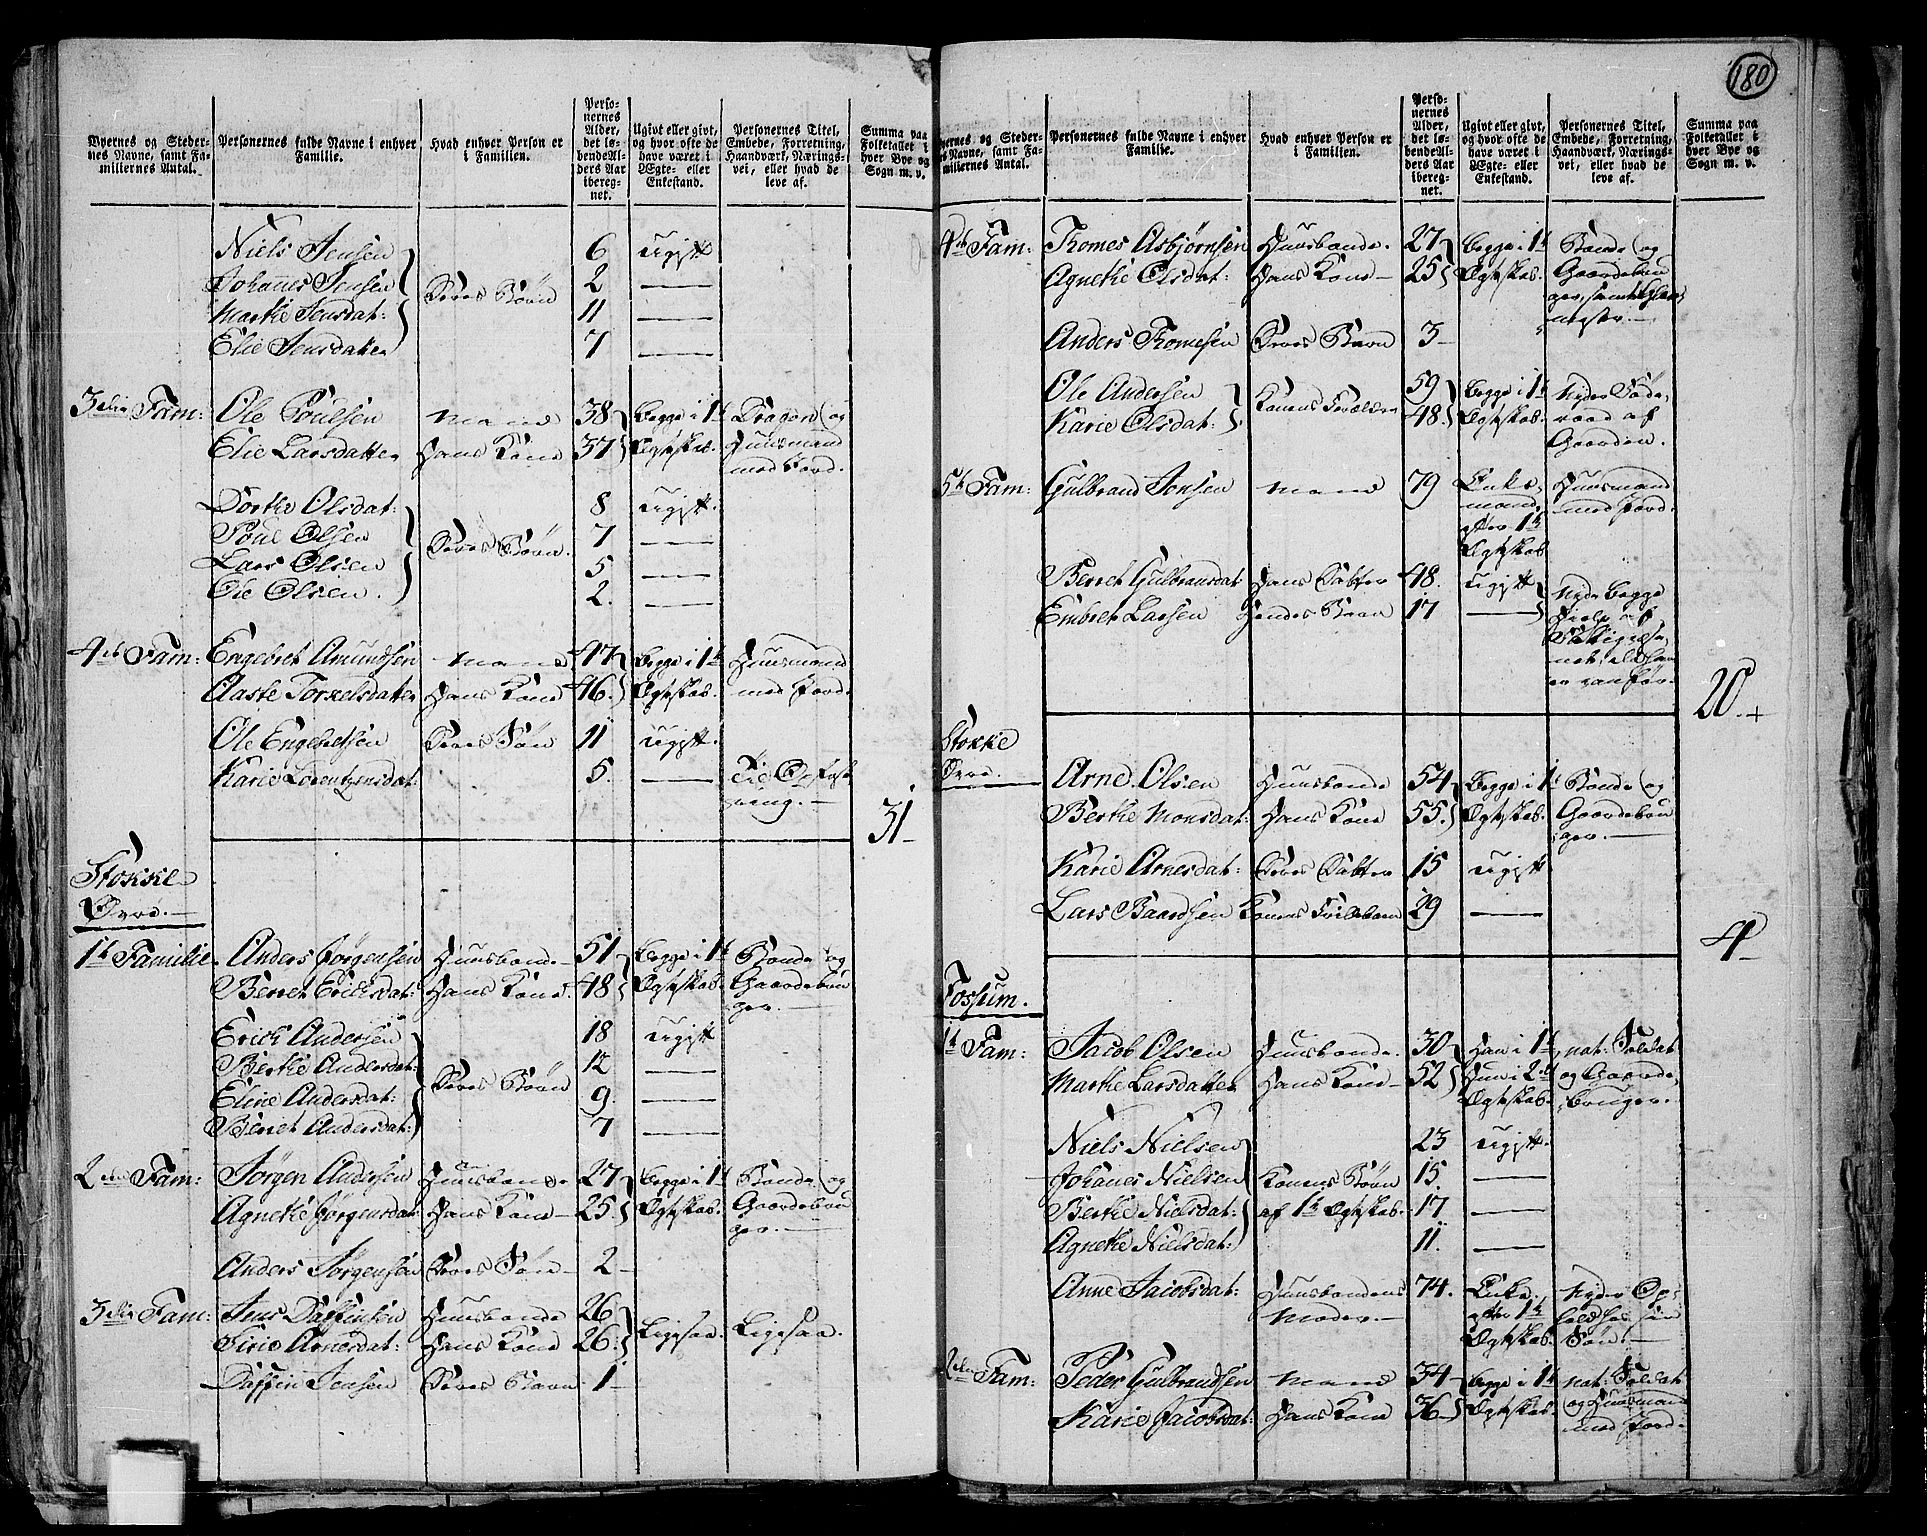 180
Byernes og Stedernes Navne, samt Familiernes Antal. | Personernes fulde Navne i enhver Familie. | Hvad enhver Person er i Familien. | Personernes Alder, det løbende Alders Aar iberegnet. | Ugivt eller givt, og hvor ofte de have været i Ægte- eller Enkestand. | Personernes Titel, Embede, Forretning, Haandværk, Næringsvei, eller hvad de leve af. | Summa paa Folketallet i hver Bye og Sogn m. v.
Niels Jensen 6 ugift
Johannes Jensen Deres Børn 2 —
Marthe Jensdat: 11 —
Elie Jensdatter 7 —
3die Fam: Ole Poulsen Mand 38 Begge i 1te Dragon og
Elie Larsdatter Hans Kone 37 Ægteskab. Huusmand
med Jord.
Dorthe Olsdat: 8 ugift.
Poul Olsen Deres Børn. 7 —
Lars Olsen 5 —
Ole Olsen. 2. —
4de Fam: Engebret Amundsen Mand 47 Begge i 1te Huusmand
Aaste Torkelsdatter Hans Kone 46. Ægteskab. med Jord.
Ole Engebretsen Deres Søn 11 ugift.
Karie Lorentzensdat: 5. — til Opfost
ring. —
31
Stokke
Øvre. —
1te Familie. Anders Jørgensen Huusbonde 51 Begge i 1te Bonde og
Berret Erichsdat: Hans Kone. 48 Ægteskab. Gaardebru
ger.
Erich Andersen 18 ugift
Berthe Andersdat: Deres Børn 12 —
Eline Andersdat: 9. —
Berret Andersdat: 7 —
2den Fam: Jørgen Andersen Huusbonde 27 Begge i 1te Bonde og
Agnethe Jørgensdat: Hans Kone 25. Ægteskab. Gaardebru
ger. —
Anders Jørgensen Deres Søn 2 —
3die Fam: Jens Daffinsen Huusbonde 26 Ligesaa. Ligesaa.
Sirie Arnesdat: Hans Kone 26.
Daffin Jensen Deres Barn 1 —
Byernes og Stedernes Navne, samt Familiernes Antal. | Personernes fulde Navne i enhver Familie. | Hvad enhver Person er i Familien. | Personernes Alder, det løbende Alders Aar iberegnet. | Ugivt eller givt, og hvor ofte de have været i Ægte- eller Enkestand. | Personernes Titel, Embede, Forretning, Haandværk, Næringsvei, eller hvad de leve af. | Summa paa Folketallet i hver Bye og Sogn m. v.
4de Fam: Thomes Asbjørnsen Huusbonde. 27 Begge i 1te Bonde og
Agnethe Olsdat: Hans Kone 25 Ægteskab. Gaardebru
ger, samt
mester. —
Anders Thomesen Deres Barn 3 —
Ole Andersen Konens Forældre 59 Begge i 1te Nyder Føde,
Karie Olsdat: 48. Ægteskab. raad af
Gaarden.
5te Fam: Gulbrand Jensen Mand 79 Enke, Huusmand
mand med Jord.
efter 1te
Ægteskab
Berret Gulbransdat: Hans Datter 48. ugift Nyde begge
Embret Larsen Hendes Barn 17 — Hielp af
20. +
Stokke
Øvre. — Arne Olsen Huusbonde 54 Begge i 1te Bonde og
Berthe Monsdat: Hans Kone 55. Ægteskab. Gaardebru
ger. —
Karie Arnesdat: Deres Datter 15 ugift
Lars Baardsen Konens 29 —
4 —
Fossum.
1te Fam: Jacob Olsen Huusbonde. 30 Han i 1te, nat: Soldat
Marthe Larsdatter Hans Kone 52 Hun i 2det og Gaarde,
Ægteskab. bruger.
Niels Nielsen 23 ugift.
Johanes Nielsen Konens Børn 15. —
Berthe Nielsdat: af 1te Ægteskab. 17 —
Agnethe Nielsdat: 11. —
Anne Jacobsdat: Huusbondens 74. Enke. Nyder Op-
Moder. — efter 1te hos sin
Ægteskab. Søn. —
2den Fam: Peder Gulbrandsen Mand 34 Begge i 1te nat: Soldat
Karie Jacobsdat: Hans Kone 36 Ægteskab. og Huusmand
med Jord.